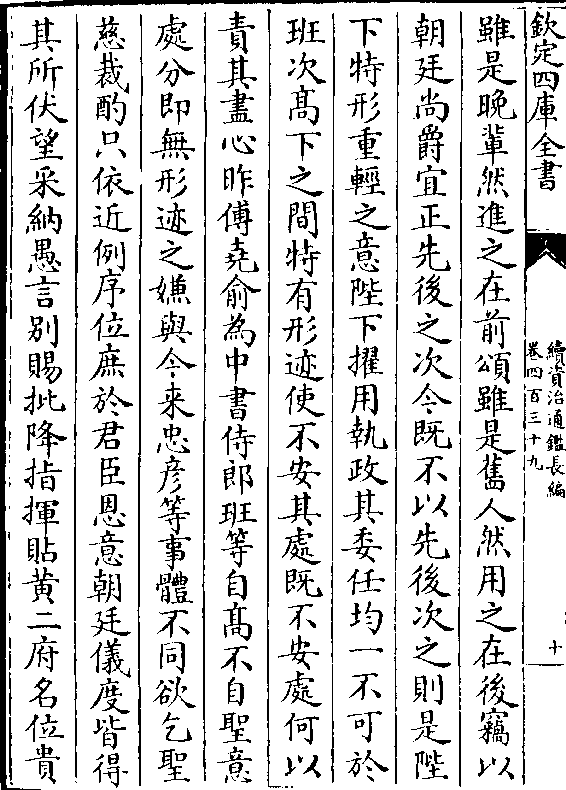 欽定四庫全書
續資治通鑑長編
卷四百三十九
十
雖是晚輩然進之在前頌雖是舊人然用之在後竊以
朝廷尚爵宜正先後之次今既不以先後次之則是陛
下特形重輕之意陛下擢用執政其委任均一不可於
班次髙下之間特有形迹使不安其處既不安處何以
責其盡心昨傅堯俞為中書侍郎班等自髙不自聖意
處分即無形迹之嫌與今来忠彦等事體不同欲乞聖
慈裁酌只依近例序位庶於君臣恩意朝廷儀度皆得
其所伏望采納愚言别賜批降指揮貼黄二府名位貴